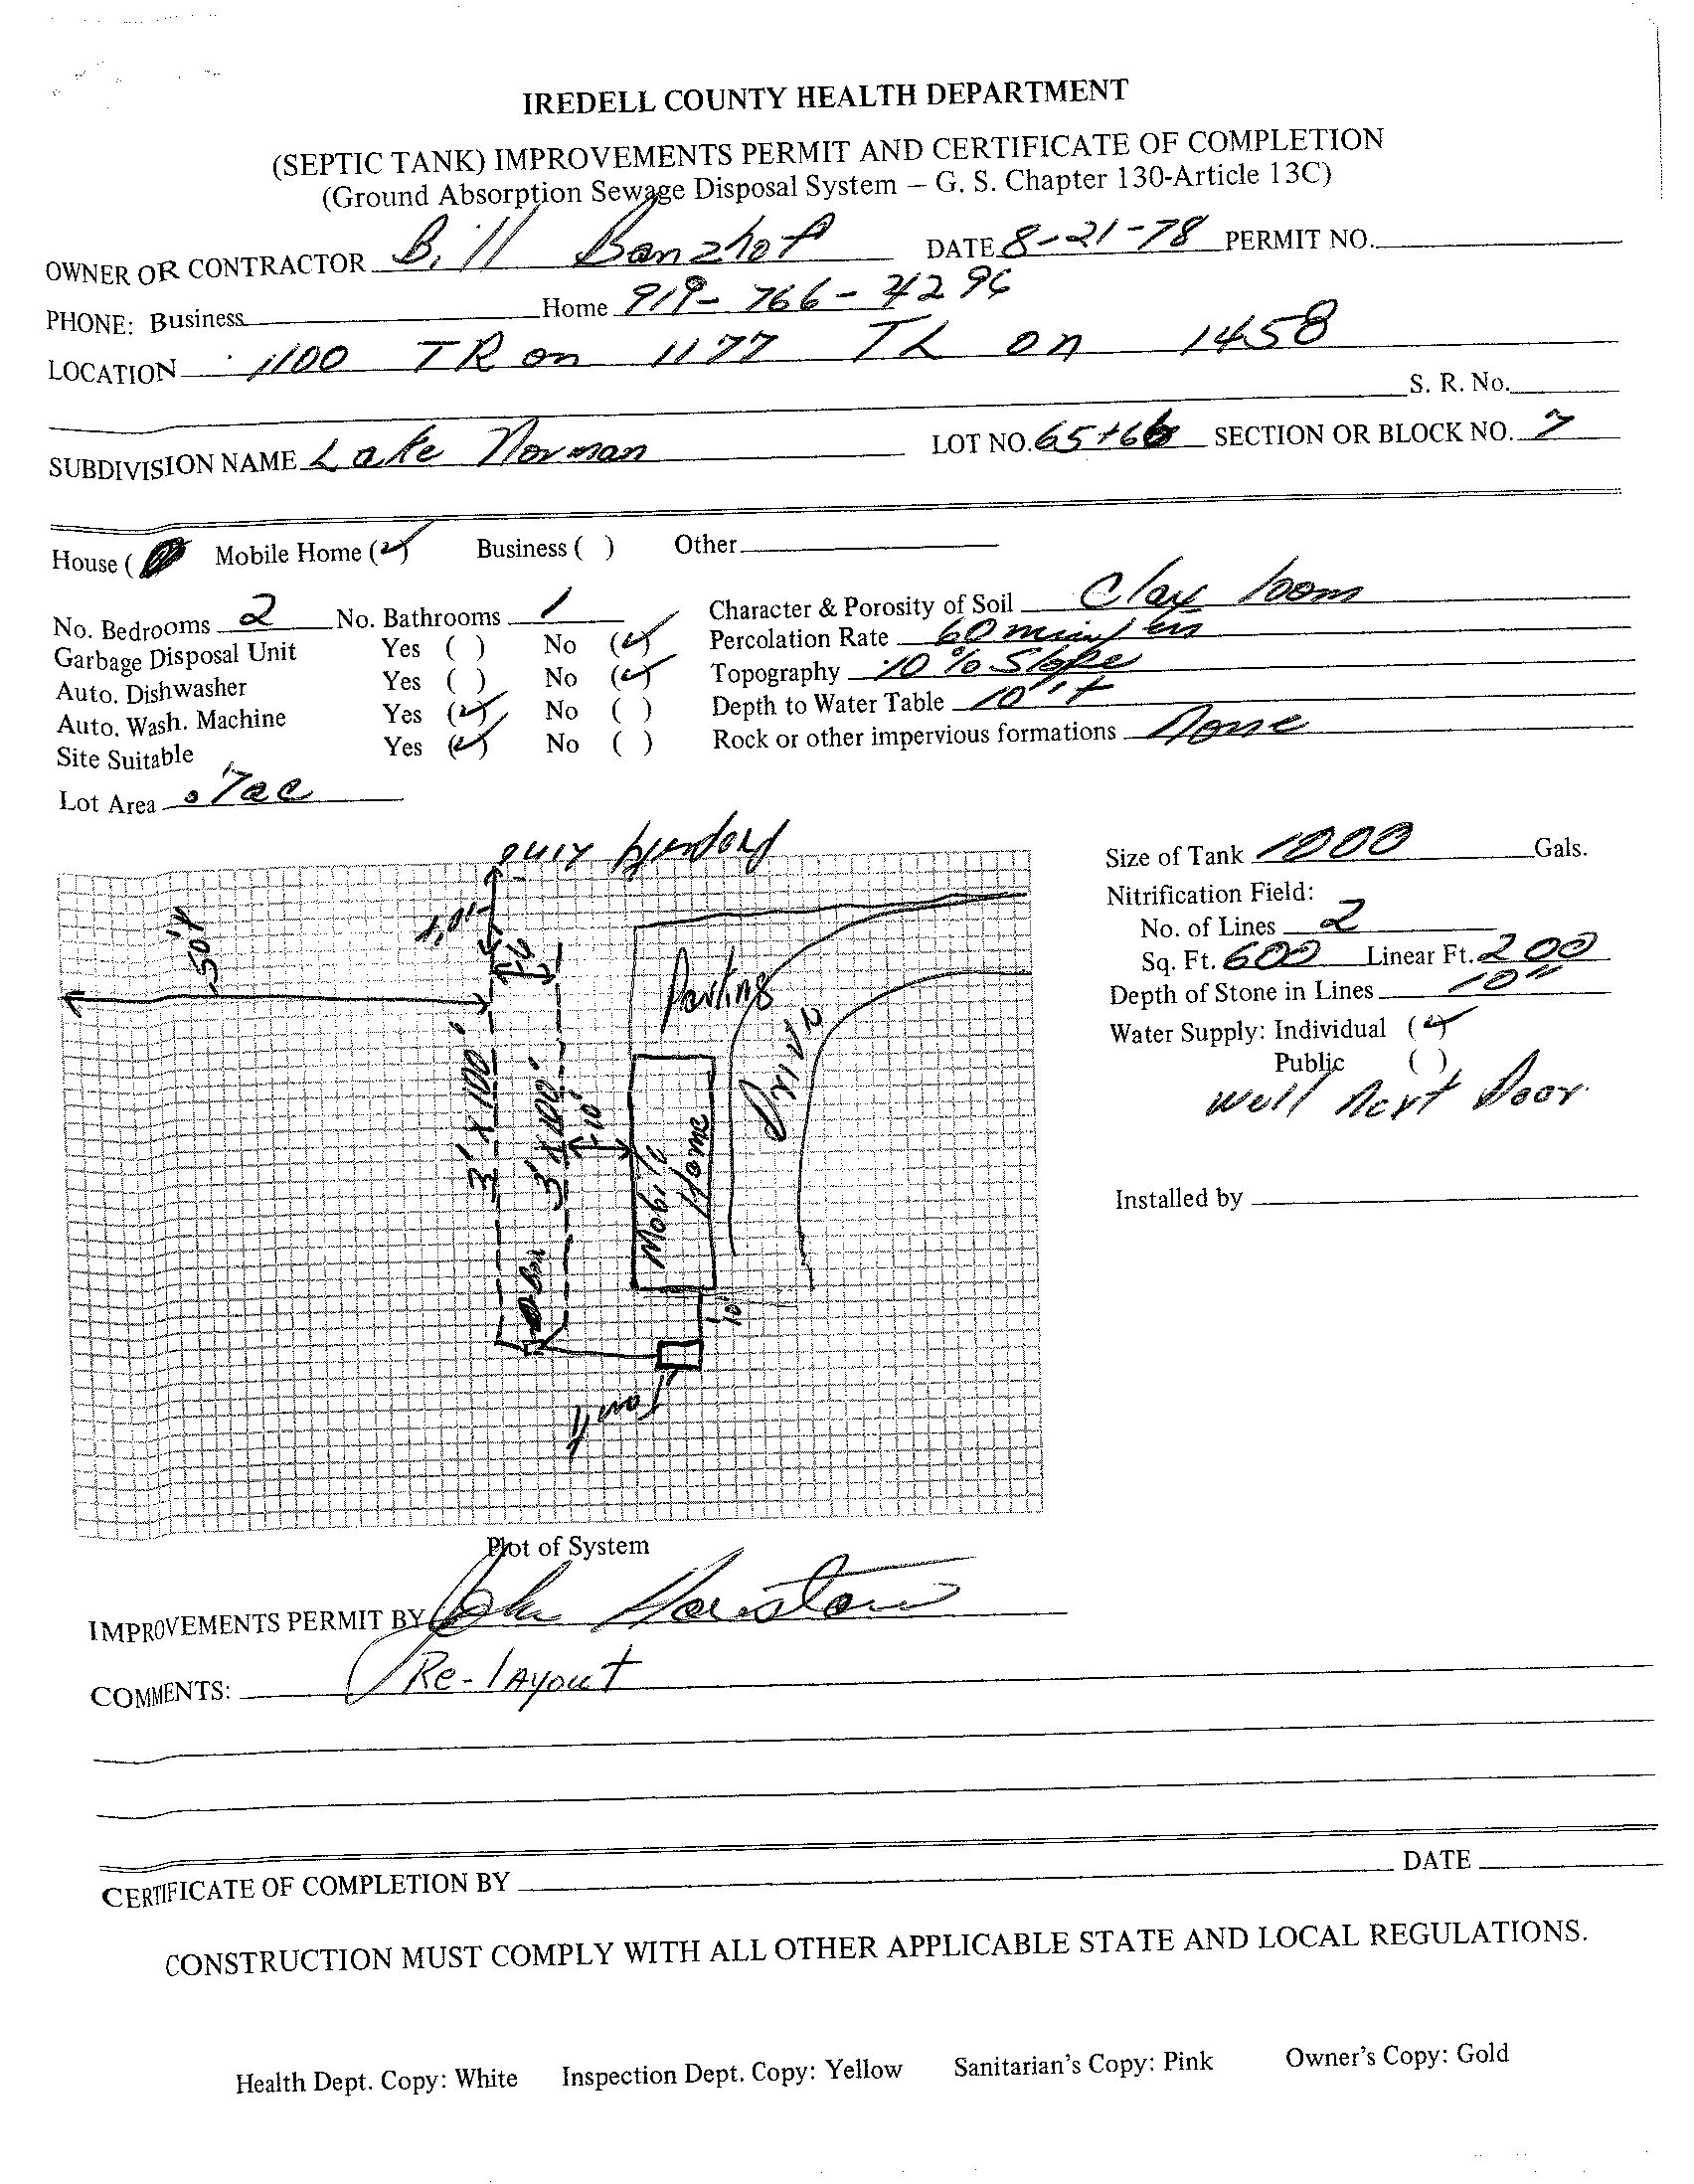 IREDELL COUNTY HEALTH DEPARTMENT
(SEPTIC TANK) IMPROVEMENTS PERMIT AND CERTIFICATE OF COMPLETION
(Ground Absorption Sewage Disposal System – G. S. Chapter 130-Article 13C)
OWNER OR CONTRACTOR Bill Banzhof DATE 8-21-78 PERMIT NO.
PHONE: Business Home 919-766-4296
LOCATION 1100 TR on 1177 TL on 1458
S. R. No.
SUBDIVISION NAME Lake Norman LOT NO. 65+66 SECTION OR BLOCK NO. 7
House ( ) Mobile Home (✓) Business ( ) Other
No. Bedrooms 2 No. Bathrooms 1
Garbage Disposal Unit Yes ( ) No (✓)
Auto. Dishwasher Yes ( ) No (✓)
Auto. Wash. Machine Yes (✓) No ( )
Site Suitable Yes (✓) No ( )
Lot Area .7ac
Character & Porosity of Soil Clay loom
Percolation Rate 60 min/in
Topography 10% Slope
Depth to Water Table 10'+
Rock or other impervious formations None
Property Line
50'+
10'
Parking
Drive
3' x 100'
3' x 100'
10'
Mobile Home
D Box
10'
Tank
Size of Tank 1000 Gals.
Nitrification Field:
No. of Lines 2
Sq. Ft. 600 Linear Ft. 200
Depth of Stone in Lines 10"
Water Supply: Individual (✓)
Public ( )
Well Next Door
Installed by
Plot of System
IMPROVEMENTS PERMIT BY John
COMMENTS: Re-layout
CERTIFICATE OF COMPLETION BY DATE
CONSTRUCTION MUST COMPLY WITH ALL OTHER APPLICABLE STATE AND LOCAL REGULATIONS.
Health Dept. Copy: White Inspection Dept. Copy: Yellow Sanitarian's Copy: Pink Owner's Copy: Gold